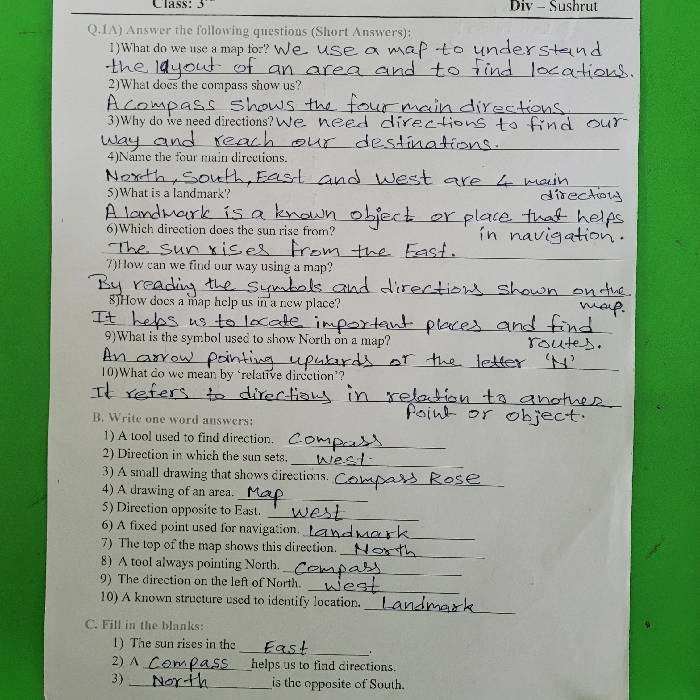 Class: 3rd Div – Sushrut
Q.1A) Answer the following questions (Short Answers):
1)What do we use a map for? We use a map to understand
the layout of an area and to find locations.
2)What does the compass show us?
A compass shows the four main directions
3)Why do we need directions? We need directions to find our
way and reach our destinations.
4)Name the four main directions.
North, South, East and West are 4 main
directions
5)What is a landmark?
A landmark is a known object or place that helps
in navigation.
6)Which direction does the sun rise from?
The Sun rises from the East.
7)How can we find our way using a map?
By reading the symbols and directions shown on the
map.
8)How does a map help us in a new place?
It helps us to locate important places and find
routes.
9)What is the symbol used to show North on a map?
An arrow pointing upwards or the letter 'N'
10)What do we mean by 'relative direction'?
It refers to directions in relation to another
Point or object.
B. Write one word answers:
1) A tool used to find direction. Compass
2) Direction in which the sun sets. West.
3) A small drawing that shows directions. Compass Rose
4) A drawing of an area. Map
5) Direction opposite to East. West
6) A fixed point used for navigation. Landmark
7) The top of the map shows this direction. North
8) A tool always pointing North. Compass
9) The direction on the left of North. West
10) A known structure used to identify location. Landmark
C. Fill in the blanks:
1) The sun rises in the East.
2) A Compass helps us to find directions.
3) North is the opposite of South.